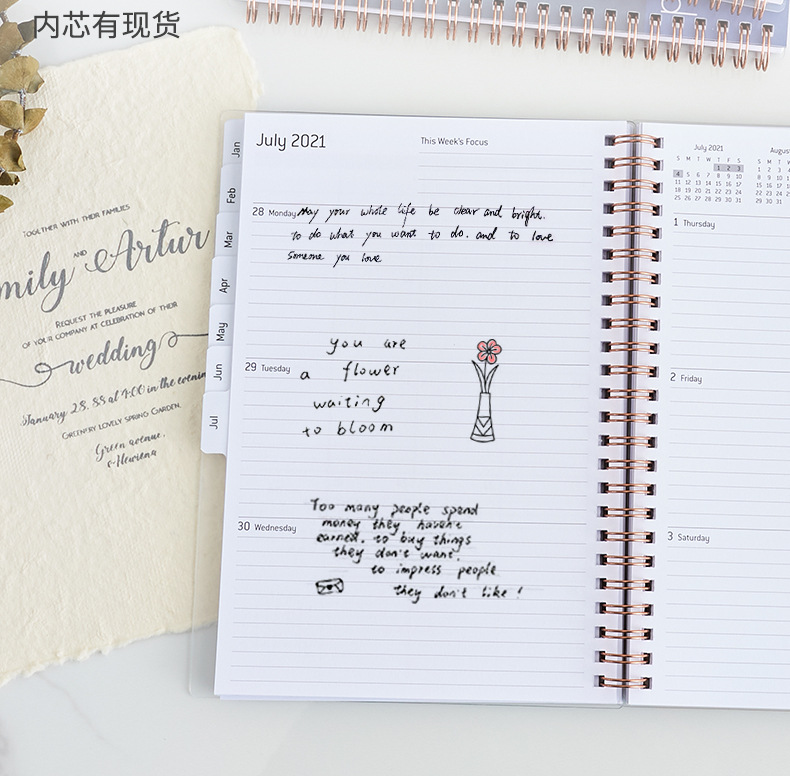 内芯有现货
TOGETHER WITH THEIR FAMILIES
mily AND Artur
REQUEST THE PLEASURE
OF YOUR COMPANY AT CELEBRATION OF THEIR
wedding
January 28, 85 at 4:00 in the evenin
GREENERY LOVELY SPRING GARDEN,
Green avenue,
Jan
Feb
Mar
Apr
May
Jun
Jul
July 2021
This Week's Focus
28 Monday May your whole life be clear and bright.
to do what you want to do. and to love
someone you love
you are
29 Tuesday a flower
waiting
to bloom
Too many people spend
30 Wednesday money they haven't
earned. to buy things
they don't want.
to impress people
they don't like!
July 2021
S M T W T F S
1 2 3
4 5 6 7 8 9 10
11 12 13 14 15 16 17
18 19 20 21 22 23 24
25 26 27 28 29 30 31
August
S M T W
1 2 3 4
8 9 10 11
15 16 17 18
22 23 24 25
29 30 31
1 Thursday
2 Friday
3 Saturday